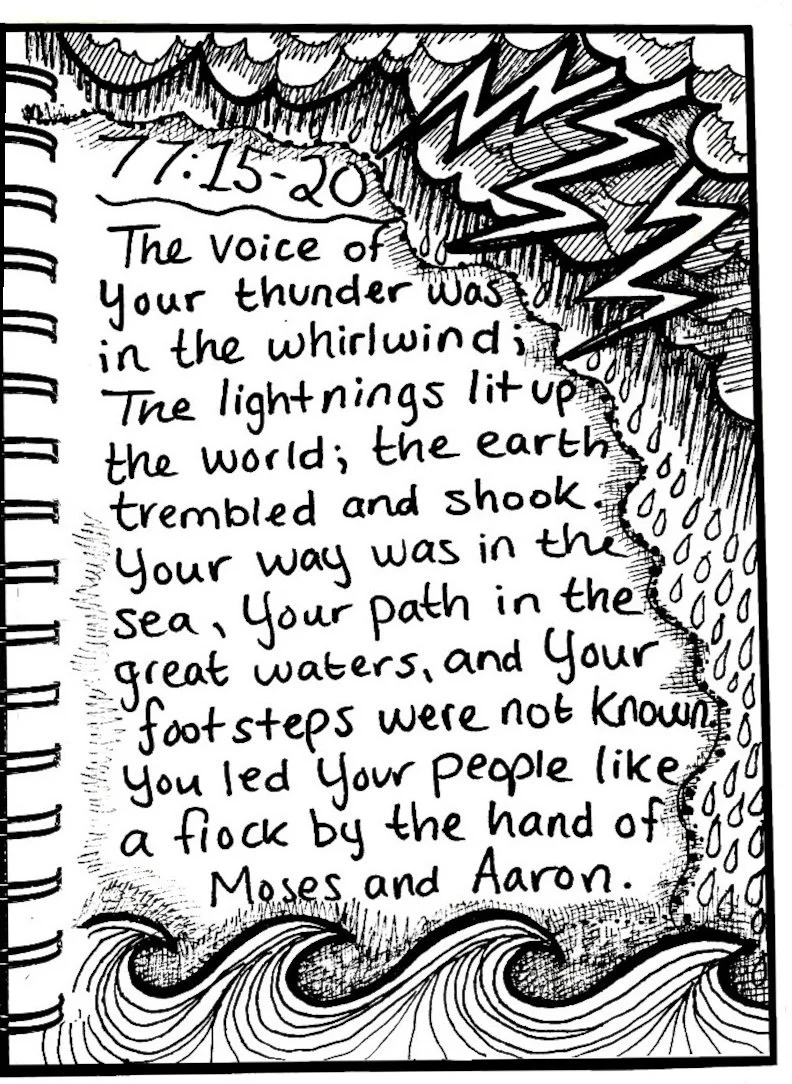 77:15-20
The voice of
Your thunder was
in the whirlwind;
The lightnings lit up
the world; the earth
trembled and shook.
Your way was in the
sea, Your path in the
great waters, and Your
footsteps were not known.
You led Your people like
a flock by the hand of
Moses and Aaron.